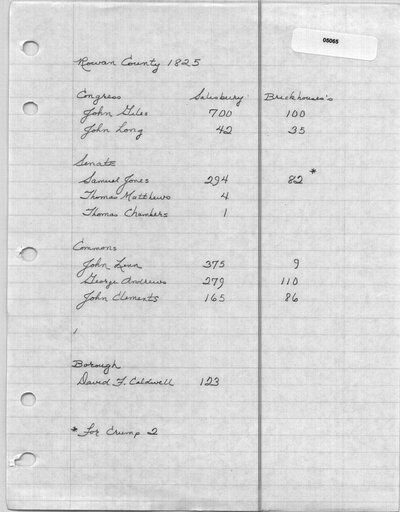 05065
Rowan County 1825
Congress Salisbury Brickhouse's
John Giles 700 100
John Long 42 35
Senate
Samuel Jones 294 82 *
Thomas Matthews 4
Thomas Chambers 1
Commons
John Linn 375 9
George Andrews 279 110
John Clements 165 86
Borough
David F. Caldwell 123
* For Crump 2